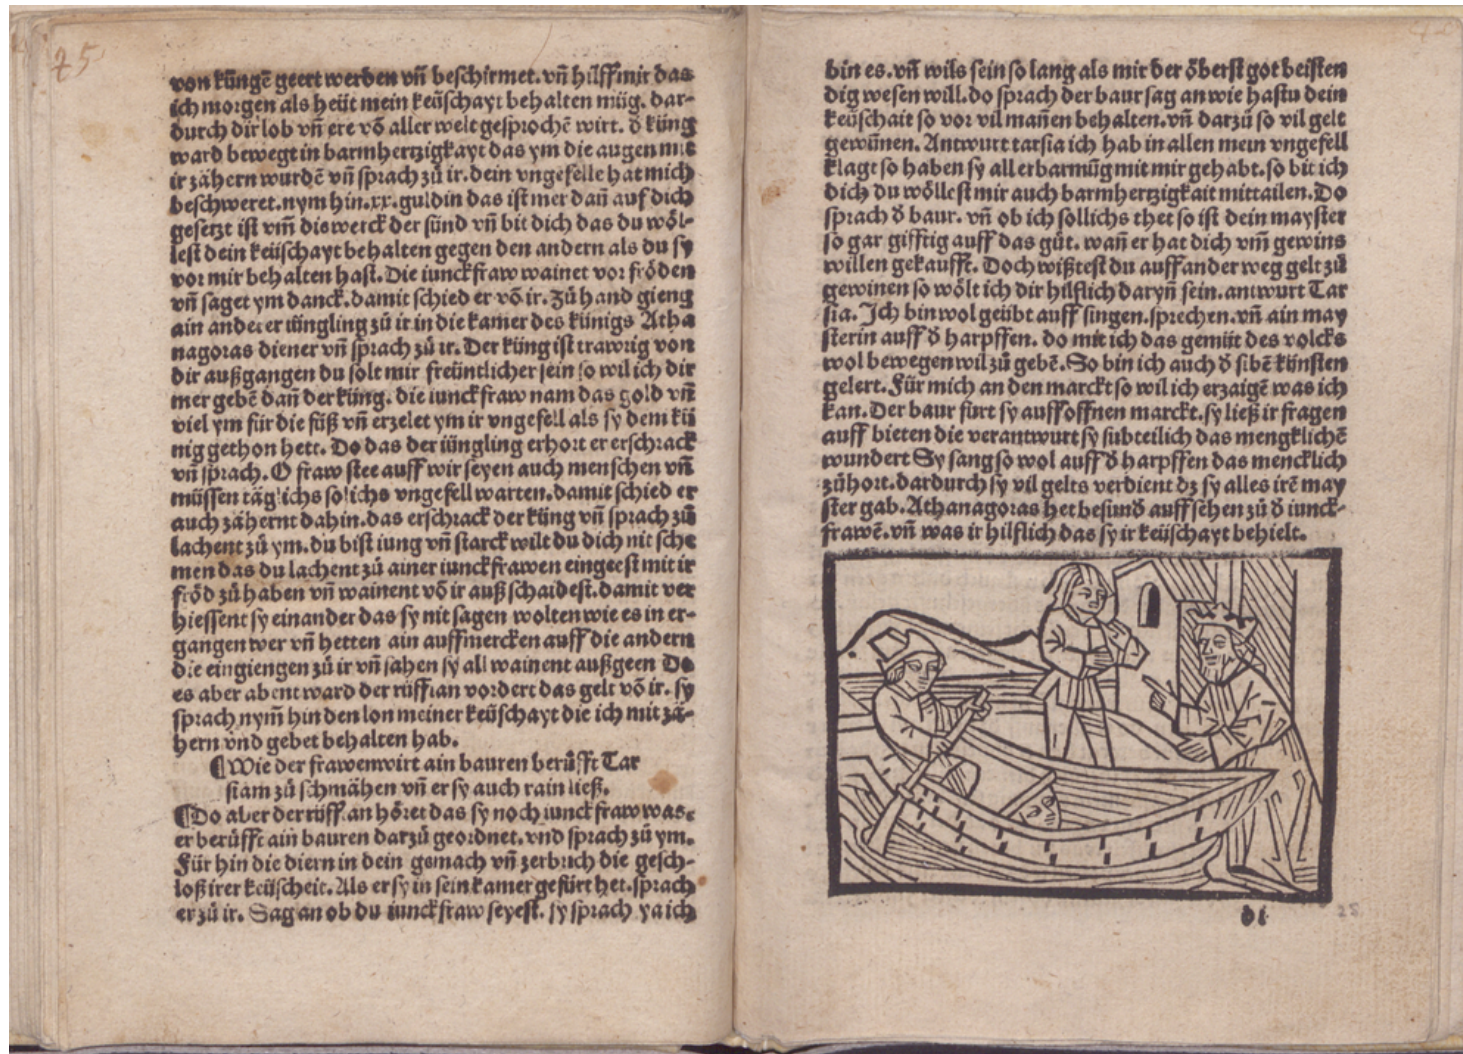 25
von küngē geert werden vñ beschirmet. vñ hilff mir das
ich morgen als heüt mein keüschayt behalten müg. dar-
durch dir lob vñ ere vō aller welt gesprochē wirt. d̄ küng
ward bewegt in barmhertzigkayt das ym die augen mit
ir zähern wurdē vñ sprach zů ir. dein vngefelle hat mich
beschweret. nym hin .xx. guldin das ist mer dañ auf dich
gesetzt ist vm̄ dis werck der sünd vñ bit dich das du wöl-
lest dein keüschayt behalten gegen den andern als du sy
vor mir behalten hast. Die iunckfraw wainet vor fröden
vñ saget ym danck. damit schied er vō ir. Zů hand gieng
ain ander er iüngling zů ir in die kamer des künigs Atha
nagoras diener vñ sprach zů ir. Der küng ist trawrig von
dir außgangen du solt mir freüntlicher sein so wil ich dir
mer gebē dañ der küng. die iunckfraw nam das gold vñ
viel ym für die füß vñ erzelet ym ir vngefell als sy dem kü
nig gethon hett. Do das der iüngling erhort er erschrack
vñ sprach. O fraw stee auff wir seyen auch menschen vñ
müssen täglichs solichs vngefell warten. damit schied er
auch zähernt dahin. das erschrack der küng vñ sprach zů
lachent zů ym. du bist iung vñ starck wilt du dich nit sche
men das du lachent zů ainer iunckfrawen eingeest mit ir
fröd zů haben vñ wainent vō ir auß schaidest. damit ver
hiessent sy einander das sy nit sagen wolten wie es in er-
gangen wer vñ hetten ain auffmercken auff die andern
die eingiengen zů ir vñ sahen sy all wainent außgeen Do
es aber abent ward der rüffian vordert das gelt vō ir. sy
sprach nym̄ hin den lon meiner keüschayt die ich mit zä-
hern vnd gebet behalten hab.
¶ Wie der frawenwirt ain bauren berůfft Tar
siam zů schmähen vñ er sy auch rain ließ.
¶ Do aber der rüffian höret das sy noch iunckfraw was.
er berůfft ain bauren darzů geordnet. vnd sprach zů ym.
Für hin die diern in dein gemach vñ zerbrich die gesch-
loß irer keüscheit. Als er sy in sein kamer gefürt het. sprach
er zů ir. Sag an ob du iunckfraw seyest. sy sprach ya ich
bin es. vñ wils sein so lang als mir der öberst got beisten
dig wesen will. do sprach der baur sag an wie hastu dein
keüschait so vor vil mañen behalten. vñ darzů so vil gelt
gewunen. Antwurt tarsia ich hab in allen mein vngefell
klagt so haben sy all erbarmūg mit mir gehabt. so bit ich
dich du wöllest mir auch barmhertzigkait mittailen. Do
sprach d̄ baur. vñ ob ich sollichs thet so ist dein mayster
so gar gifftig auff das gůt. wañ er hat dich vm̄ gewins
willen gekaufft. Doch wißtest du auff ander weg gelt zů
gewinen so wölt ich dir hilflich daryñ sein. antwurt Tar
sia. Ich bin wol geübt auff singen. sprechen. vñ ain may
sterin auff d̄ harpffen. do mit ich das gemüt des volcks
wol bewegen wil zů gebē. So bin ich auch d̄ sibē künsten
gelert. Für mich an den marckt so wil ich erzaigē was ich
kan. Der baur fürt sy auff offnen marckt. sy ließ ir fragen
auff bieten die verantwurt sy subteilich das mengklichē
wundert Sy sang so wol auff d̄ harpffen das mencklich
zůhort. dardurch sy vil gelts verdient dz sy alles irē may
ster gab. Athanagoras het besund̄ auff sehen zů d̄ iunck-
frawē. vñ was ir hilflich das sy ir keüschayt behielt.
d1
25